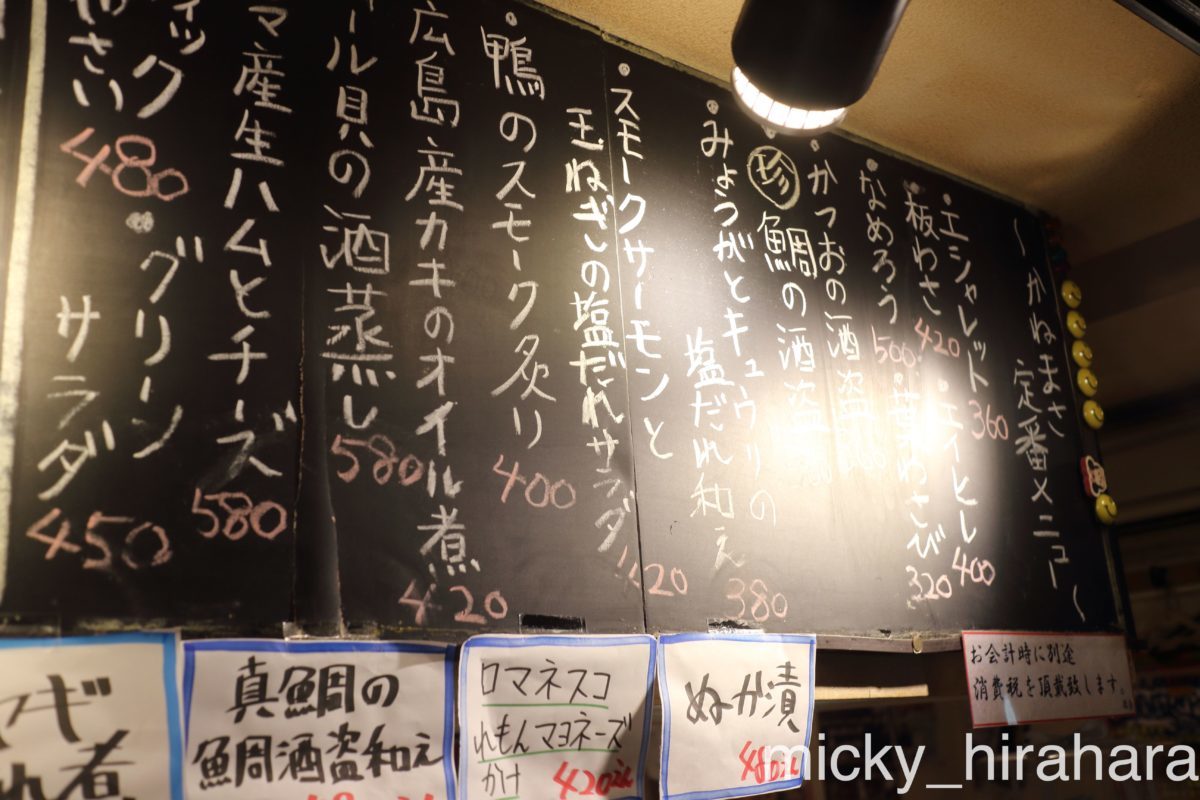 〜かねまさ
定番メニュー〜
・エシャレット 360
・エイヒレ 400
・板わさ 420
・葉わさび 320
・なめろう 500
・かつおの酒盗
・珍 鯛の酒盗
みょうがとキュウリの
塩だれ和え 380
・スモークサーモンと
玉ねぎの塩だれサラダ 420
・鴨のスモーク炙り 400
広島産カキのオイル煮 420
ール貝の酒蒸し 580
マ産生ハムとチーズ 580
グリーン
サラダ 450
ィック
さい 480
お会計時に別途
消費税を頂戴致します。
ぬか漬
480
ロマネスコ
れもんマヨネーズ
かけ 420
真鯛の
鯛酒盗和え
ギ
れ煮
micky_hirahara